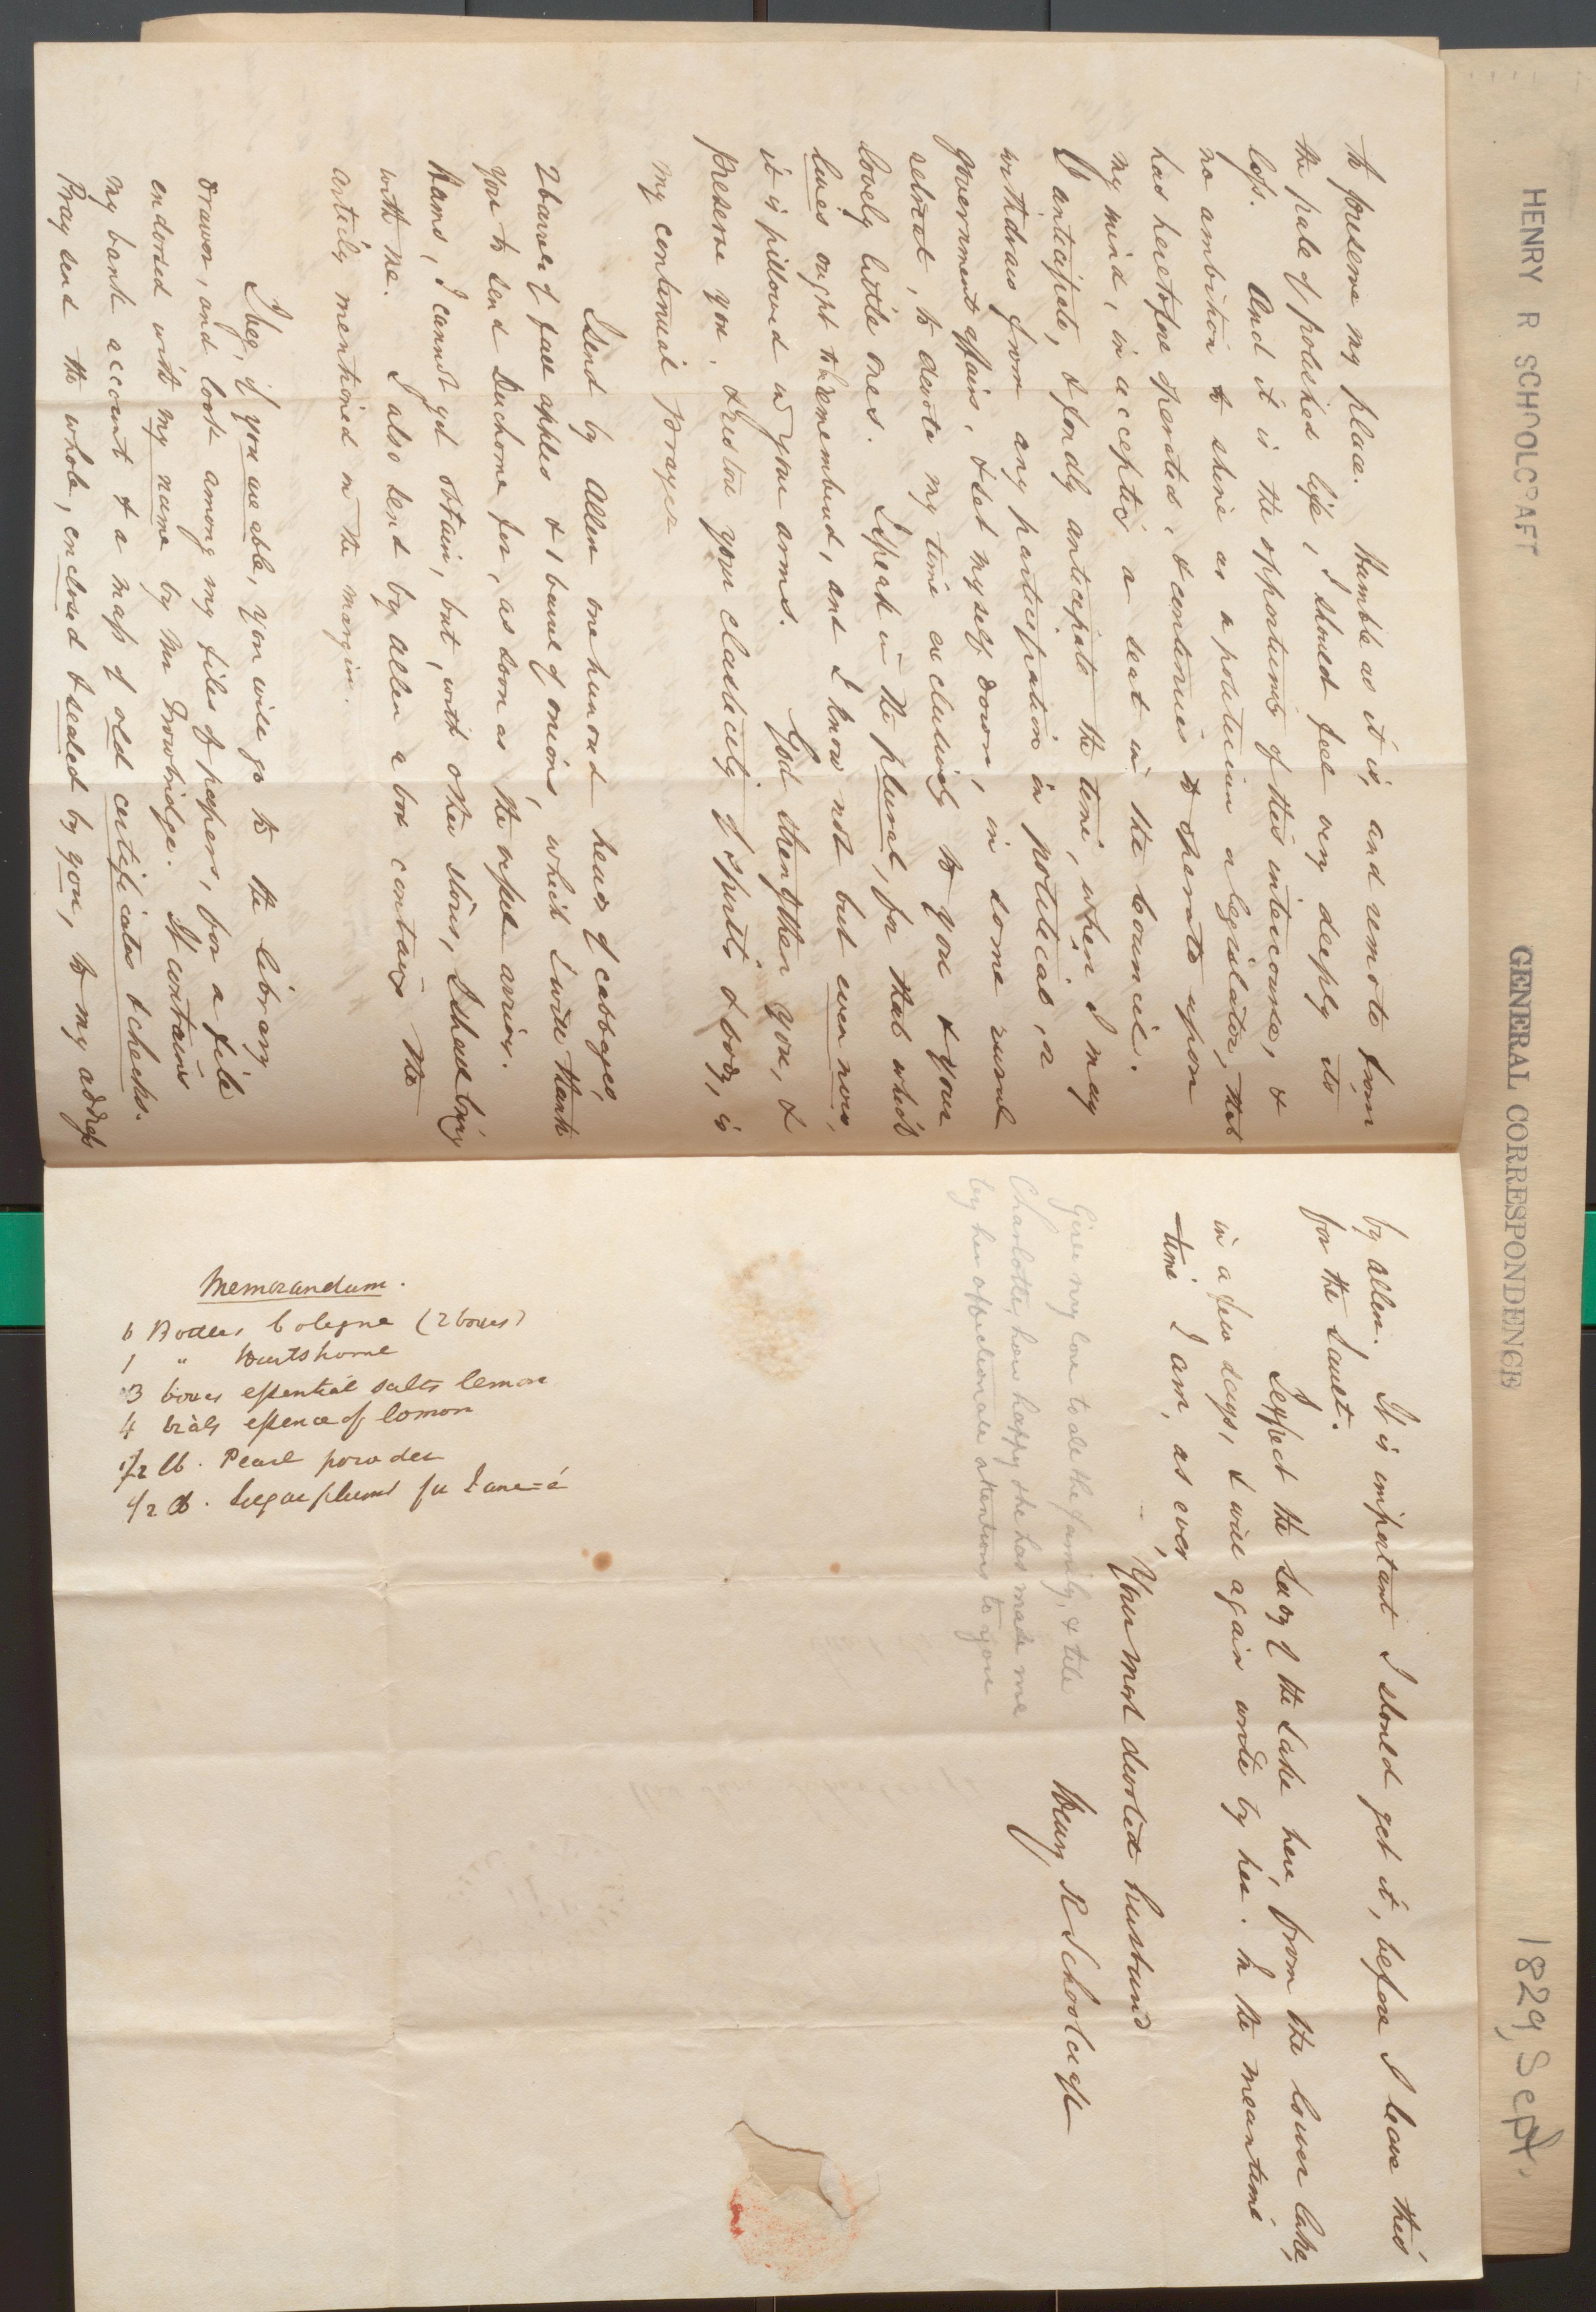 to preserve my place. Humble as it is, and remote from
the pale of polished life, I should feel very deeply its
loss. And it is the opportunity of this intercourse, &
no ambition to shine as a politician a legislator, that
has heretofore operated, & continues to operate upon
my mind, in accepting a seat in the Council.
I anticipate, & fondly anticipate the time, when I may
withdraw from any participation in political, or
government affairs, & set myself down, in some rural
retreat, to devote my time exclusively to you & your
lovely little ones. I speak in the plural, for that which
lives ought to be remembered, and I know not but even now,
it is pillowed in your arms. God strengthen you, &
preserve you, & restore your elasticity of spirits & body, is
my continual prayer
I send by Allen one hundred heads of cabbages,
2 barrels of fall apples & 1 barrel of onions, which I will thank
you to send Ducharme for, as soon as the vessel arrives.
Hams, I cannot yet obtain, but, with other stores, I shall bring
with me. I also send by Allen a box containing the
articles mentioned in the margin.
I beg, if you are able, you will go to the library
drawer, and look among my files of papers, for a file
endorsed with my name by Mr Trowbridge. It contains
my bank account & a mass of old certificates & checks.
Pray send the whole, enclosed & sealed by you, to my address
by Allen. It is important I should get it, before I leave this
for the Sault.
I expect the Lady of the Lake here, from the lower lake,
in a few days, & will again write by her. In the meantime
time I am, as ever,
Your most devoted husband
Henry R Schoolcraft
Give my love to all the family, & tell
Charlotte, how happy she has made me
by her affectionate attentions to you
Memorandum.
6 Bottles Cologne (2 boxes)
1 " Hartshorne
3 boxes essential salts lemon
4 vials essence of lemon
1/2 lb. Pearl powder
1/2 lb. Sugar plums for Janee
HENRY R SCHOOLCRAFT
GENERAL CORRESPONDENCE
1829, Sept.